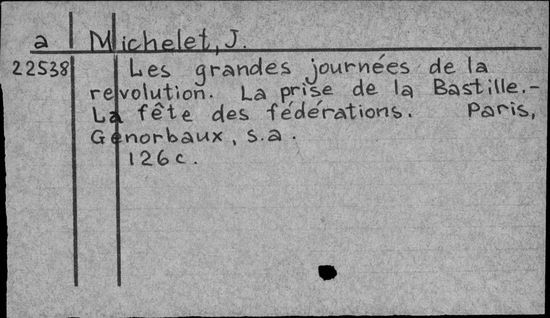 a Michelet, J.
22538 Les grandes journées de la
revolution. La prise de la Bastille.-
La fête des fédérations. Paris,
Génorbaux, s.a.
126c.